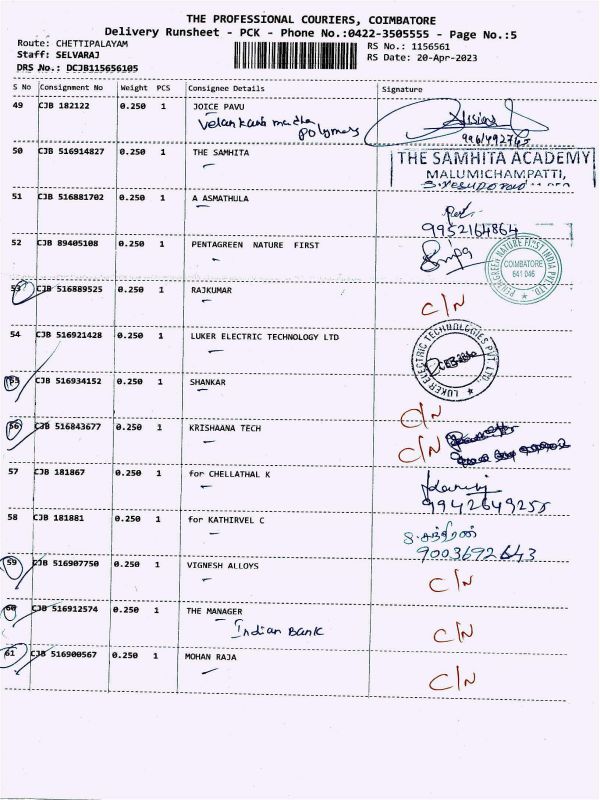 THE PROFESSIONAL COURIERS, COIMBATORE
Delivery Runsheet - PCK - Phone No.:0422-3505555 - Page No.:5
Route: CHETTIPALAYAM RS No.: 1156561
Staff: SELVARAJ RS Date: 20-Apr-2023
DRS No.: DCJB115656105
S No Consignment No Weight PCS Consignee Details Signature
49 CJB 182122 0.250 1 JOICE PAVU
Polymers
50 CJB 516914827 0.250 1 THE SAMHITA
THE SAMHITA ACADEMY
MALUMICHAMPATTI,
51 CJB 516881702 0.250 1 A ASMATHULA
9952164864
52 CJB 89405108 0.250 1 PENTAGREEN NATURE FIRST
PENTAGREEN NATURE FIRST INDIA PVT LTD
COIMBATORE
641 046
53 CJB 516889525 0.250 1 RAJKUMAR C/N
54 CJB 516921428 0.250 1 LUKER ELECTRIC TECHNOLOGY LTD
LUKER ELECTRIC TECHNOLOGIES PVT. LTD.
55 CJB 516934152 0.250 1 SHANKAR C/N
56 CJB 516843677 0.250 1 KRISHAANA TECH C/N
57 CJB 181867 0.250 1 for CHELLATHAL K
9942649255
58 CJB 181881 0.250 1 for KATHIRVEL C
9003692643
59 CJB 516907750 0.250 1 VIGNESH ALLOYS C/N
60 CJB 516912574 0.250 1 THE MANAGER
Indian Bank C/N
61 CJB 516900567 0.250 1 MOHAN RAJA C/N